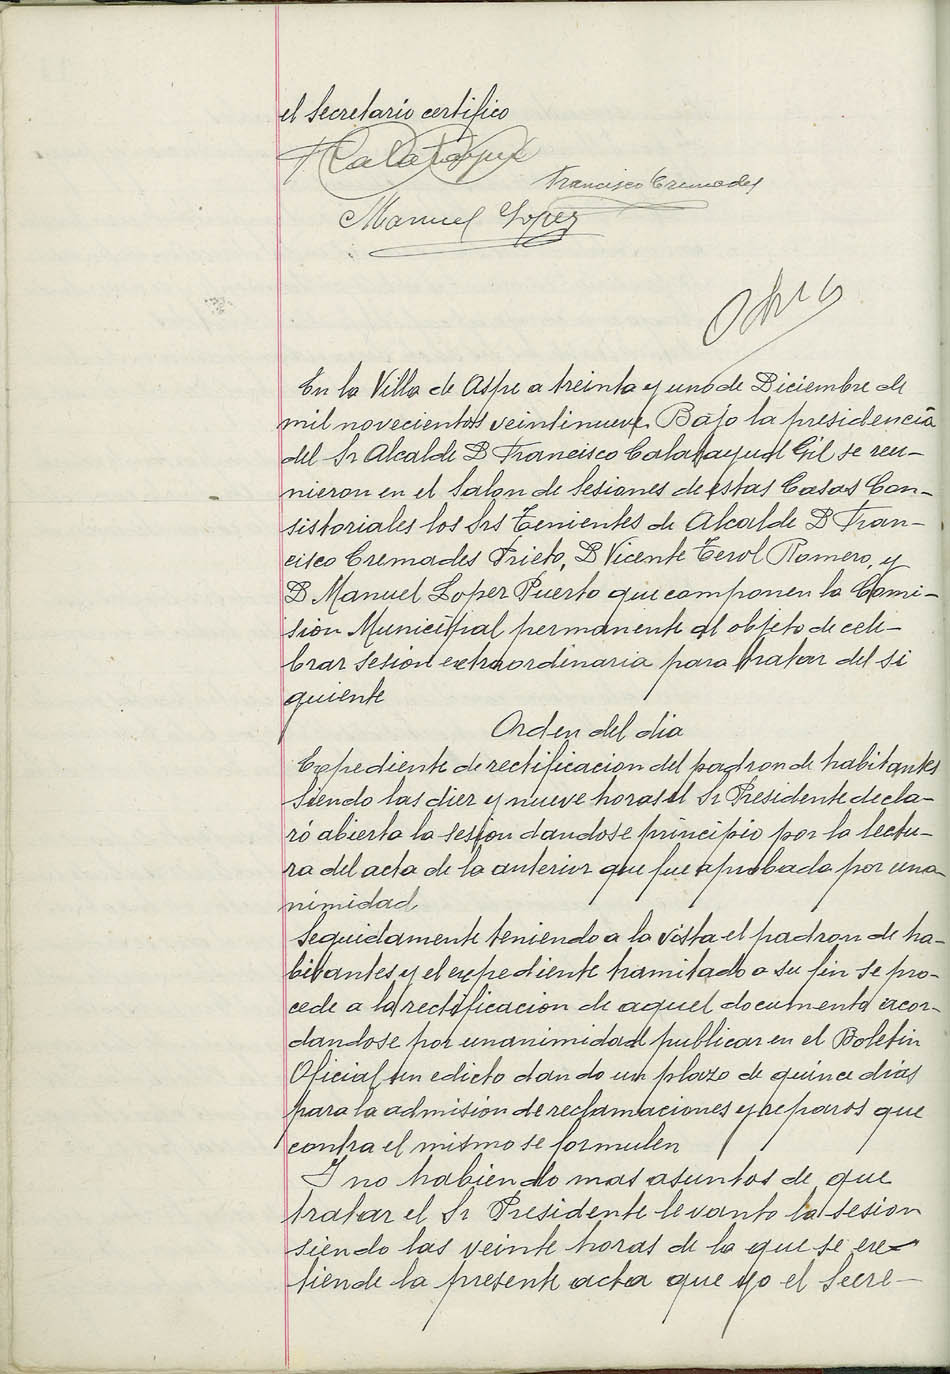 el Secretario certifico
F Calatayud
Francisco Cremades
Manuel Lopez
En la Villa de Aspe a treinta y uno de Diciembre de
mil novecientos veintinueve. Bajo la presidencia
del Sr Alcalde D Francisco Calatayud Gil se reu-
nieron en el Salon de Sesiones de estas Casas Con-
sistoriales los Srs Tenientes de Alcalde D Fran-
cisco Cremades Prieto, D Vicente Terol Romero, y
D Manuel Lopez Puerto que componen la Comi-
sion Municipal permanente al objeto de cele-
brar sesion extraordinaria para tratar del si
guiente
Orden del dia
Expediente de rectificacion del padron de habitantes
Siendo las diez y nueve horas el Sr Presidente decla-
ró abierta la sesion dandose principio por la lectu-
ra del acta de la anterior que fue aprobada por una
nimidad
Seguidamente teniendo a la vista el padron de ha-
bitantes y el expediente tramitado a su fin se pro-
cede a la rectificacion de aquel documento acor-
dandose por unanimidad publicar en el Boletin
Oficial un edicto dando un plazo de quince dias
para la admision de reclamaciones y reparos que
contra el mismo se formulen
Y no habiendo mas asuntos de que
tratar el Sr Presidente levanto la sesion
siendo las veinte horas de la que se ex-
tiende la presente acta que yo el Secre-